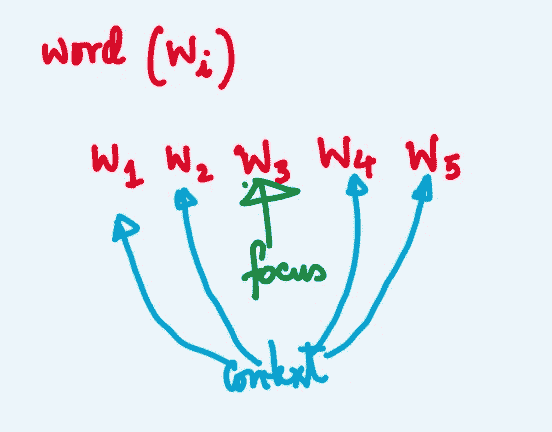 word (Wi)
W1 W2 W3 W4 W5
focus
context